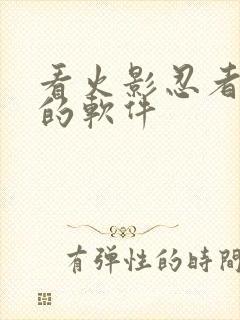 看火影忍者
的軟件
有弹性的時間